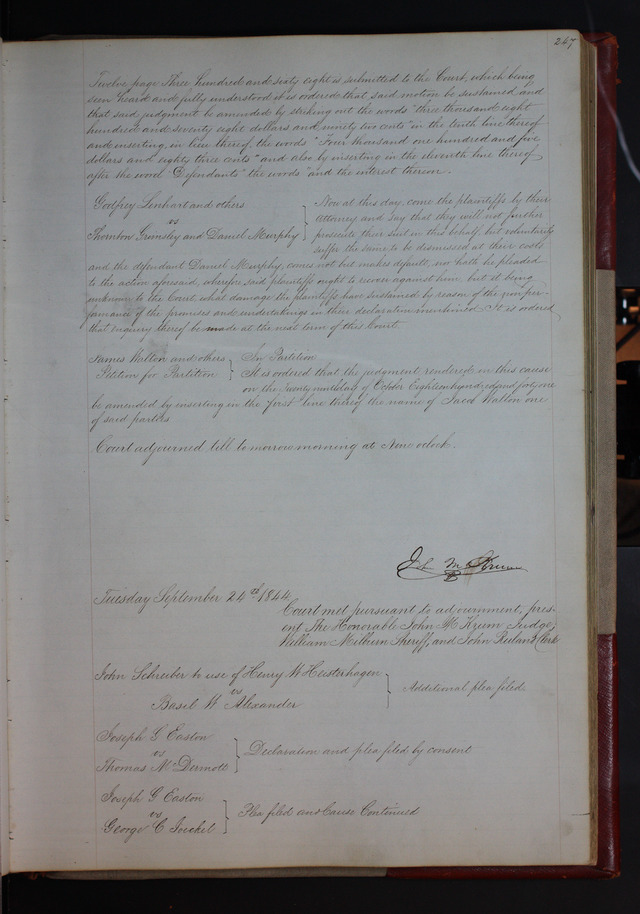 247
Twelve page Three hundred and sixty eight is submitted to the Court, which being
seen heard and fully understood it is ordered that said motion be sustained, and
that said judgment be amended by striking out the words "three thousand eight
hundred and seventy eight dollars and ninety two cents" in the tenth line thereof
and inserting in lieu thereof the words "Four thousand one hundred and five
dollars and eighty three cents" and also by inserting in the eleventh line thereof
after the word "Defendants" the words "and the interest thereon.
Godfrey Lenhart and others
vs
Thornton Grimsley and Daniel Murphy
Now at this day, come the plaintiffs by their
Attorney and say that they will not further
prosecute their suit in this behalf, but voluntarily
suffer the same to be dismissed at their costs
and the defendant Daniel Murphy, comes not but makes default, nor hath he pleaded
to the action aforesaid, wherefore said plaintiffs ought to recover against him, but it being
unknown to the Court what damage the plaintiffs have sustained by reason of the nonper-
formance of the promises and undertakings in their declaration mentioned It is ordered
that inquiry thereof be made at the next term of this Court.
James Walton and others
Petition for Partition
In Partition
It is ordered that the judgment rendered in this cause
on the Twenty ninth day of October Eighteen hundred and forty one
be amended by inserting in the first line thereof the name of Jacob Walton one
of said parties
Court adjourned till to morrow morning at Nine o'clock.
J M Krum
Tuesday September 24th 1844
Court met pursuant to adjournment, pres-
ent The Honorable John M Krum Judge,
William Milburn Sheriff, and John Ruland Clerk
John Schreiber to use of Henry W Heisterhagen
vs
Basil W Alexander
Additional plea filed
Joseph G Easton
vs
Thomas McDermott
Declaration and plea filed by consent
Joseph G Easton
vs
George C
Plea filed and Cause Continued